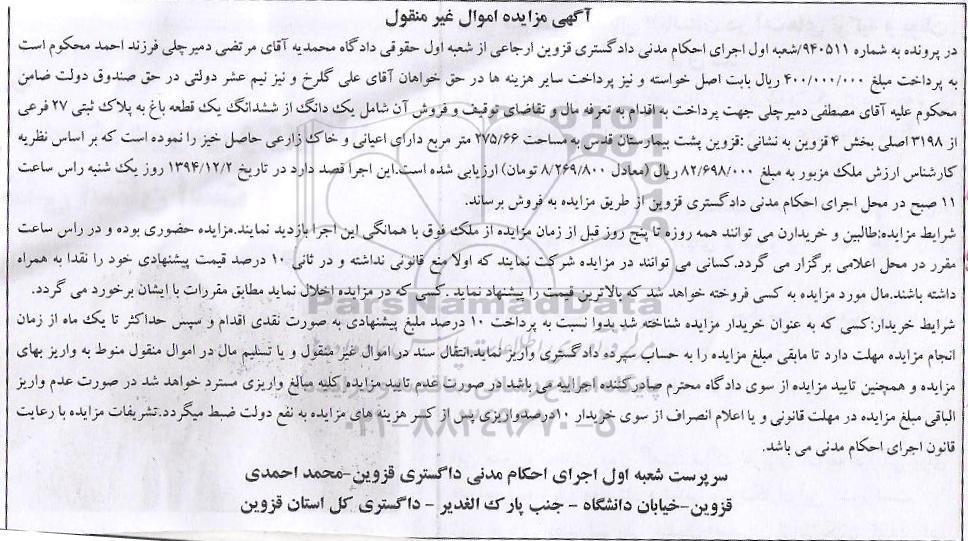 آگهی مزایده اموال غیر منقول
در پرونده به شماره ۹۴۰۵۱۱/شعبه اول اجرای احکام مدنی دادگستری قزوین ارجاعی از شعبه اول حقوقی دادگاه محمدیه آقای مرتضی دمیرچلی فرزند احمد محکوم است
به پرداخت مبلغ ۴۰۰/۰۰۰/۰۰۰ ریال بابت اصل خواسته و نیز پرداخت سایر هزینه ها در حق خواهان آقای علی گلرخ و نیز نیم عشر دولتی در حق صندوق دولت ضامن
محکوم علیه آقای مصطفی دمیرچلی جهت پرداخت به اقدام به تعرفه مال و تقاضای توقیف و فروش آن شامل یک دانگ از ششدانگ یک قطعه باغ به پلاک ثبتی ۲۷ فرعی
از ۳۱۹۸ اصلی بخش ۴ قزوین به نشانی :قزوین پشت بیمارستان قدس به مساحت ۲۷۵/۶۶ متر مربع دارای اعیانی و خاک زارعی حاصل خیز را نموده است که بر اساس نظریه
کارشناس ارزش ملک مزبور به مبلغ ۸۲/۶۹۸/۰۰۰ ریال (معادل ۸/۲۶۹/۸۰۰ تومان) ارزیابی شده است.این اجرا قصد دارد در تاریخ ۱۳۹۴/۱۲/۲ روز یک شنبه راس ساعت
۱۱ صبح در محل اجرای احکام مدنی دادگستری قزوین از طریق مزایده به فروش برساند.
شرایط مزایده:طالبین و خریدارن می توانند همه روزه تا پنج روز قبل از زمان مزایده از ملک فوق با همانگی این اجرا بازدید نمایند.مزایده حضوری بوده و در راس ساعت
مقرر در محل اعلامی برگزار می گردد.کسانی می توانند در مزایده شرکت نمایند که اولا منع قانونی نداشته و در ثانی ۱۰ درصد قیمت پیشنهادی خود را نقدا به همراه
داشته باشند.مال مورد مزایده به کسی فروخته خواهد شد که بالاترین قیمت را پیشنهاد نماید .کسی که در مزایده اخلال نماید مطابق مقررات با ایشان برخورد می گردد.
شرایط خریدار:کسی که به عنوان خریدار مزایده شناخته شد بدوا نسبت به پرداخت ۱۰ درصد ملبغ پیشنهادی به صورت نقدی اقدام و سپس حداکثر تا یک ماه از زمان
انجام مزایده مهلت دارد تا مابقی مبلغ مزایده را به حساب سپرده دادگستری واریز نماید.انتقال سند در اموال غیر منقول و یا تسلیم مال در اموال منقول منوط به واریز بهای
مزایده و همچنین تایید مزایده از سوی دادگاه محترم صادرکننده اجراییه می باشد در صورت عدم تایید مزایده کلیه مبالغ واریزی مسترد خواهد شد در صورت عدم واریز
الباقی مبلغ مزایده در مهلت قانونی و یا اعلام انصراف از سوی خریدار ۱۰درصدواریزی پس از کسر هزینه های مزایده به نفع دولت ضبط میگردد.تشریفات مزایده با رعایت
قانون اجرای احکام مدنی می باشد.
سرپرست شعبه اول اجرای احکام مدنی داگستری قزوین-محمد احمدی
قزوین-خیابان دانشگاه - جنب پارک الغدیر - داگستری کل استان قزوین
ParsNamadData
۰۲۱-۸۸۳۴۹۶۷۰-۵